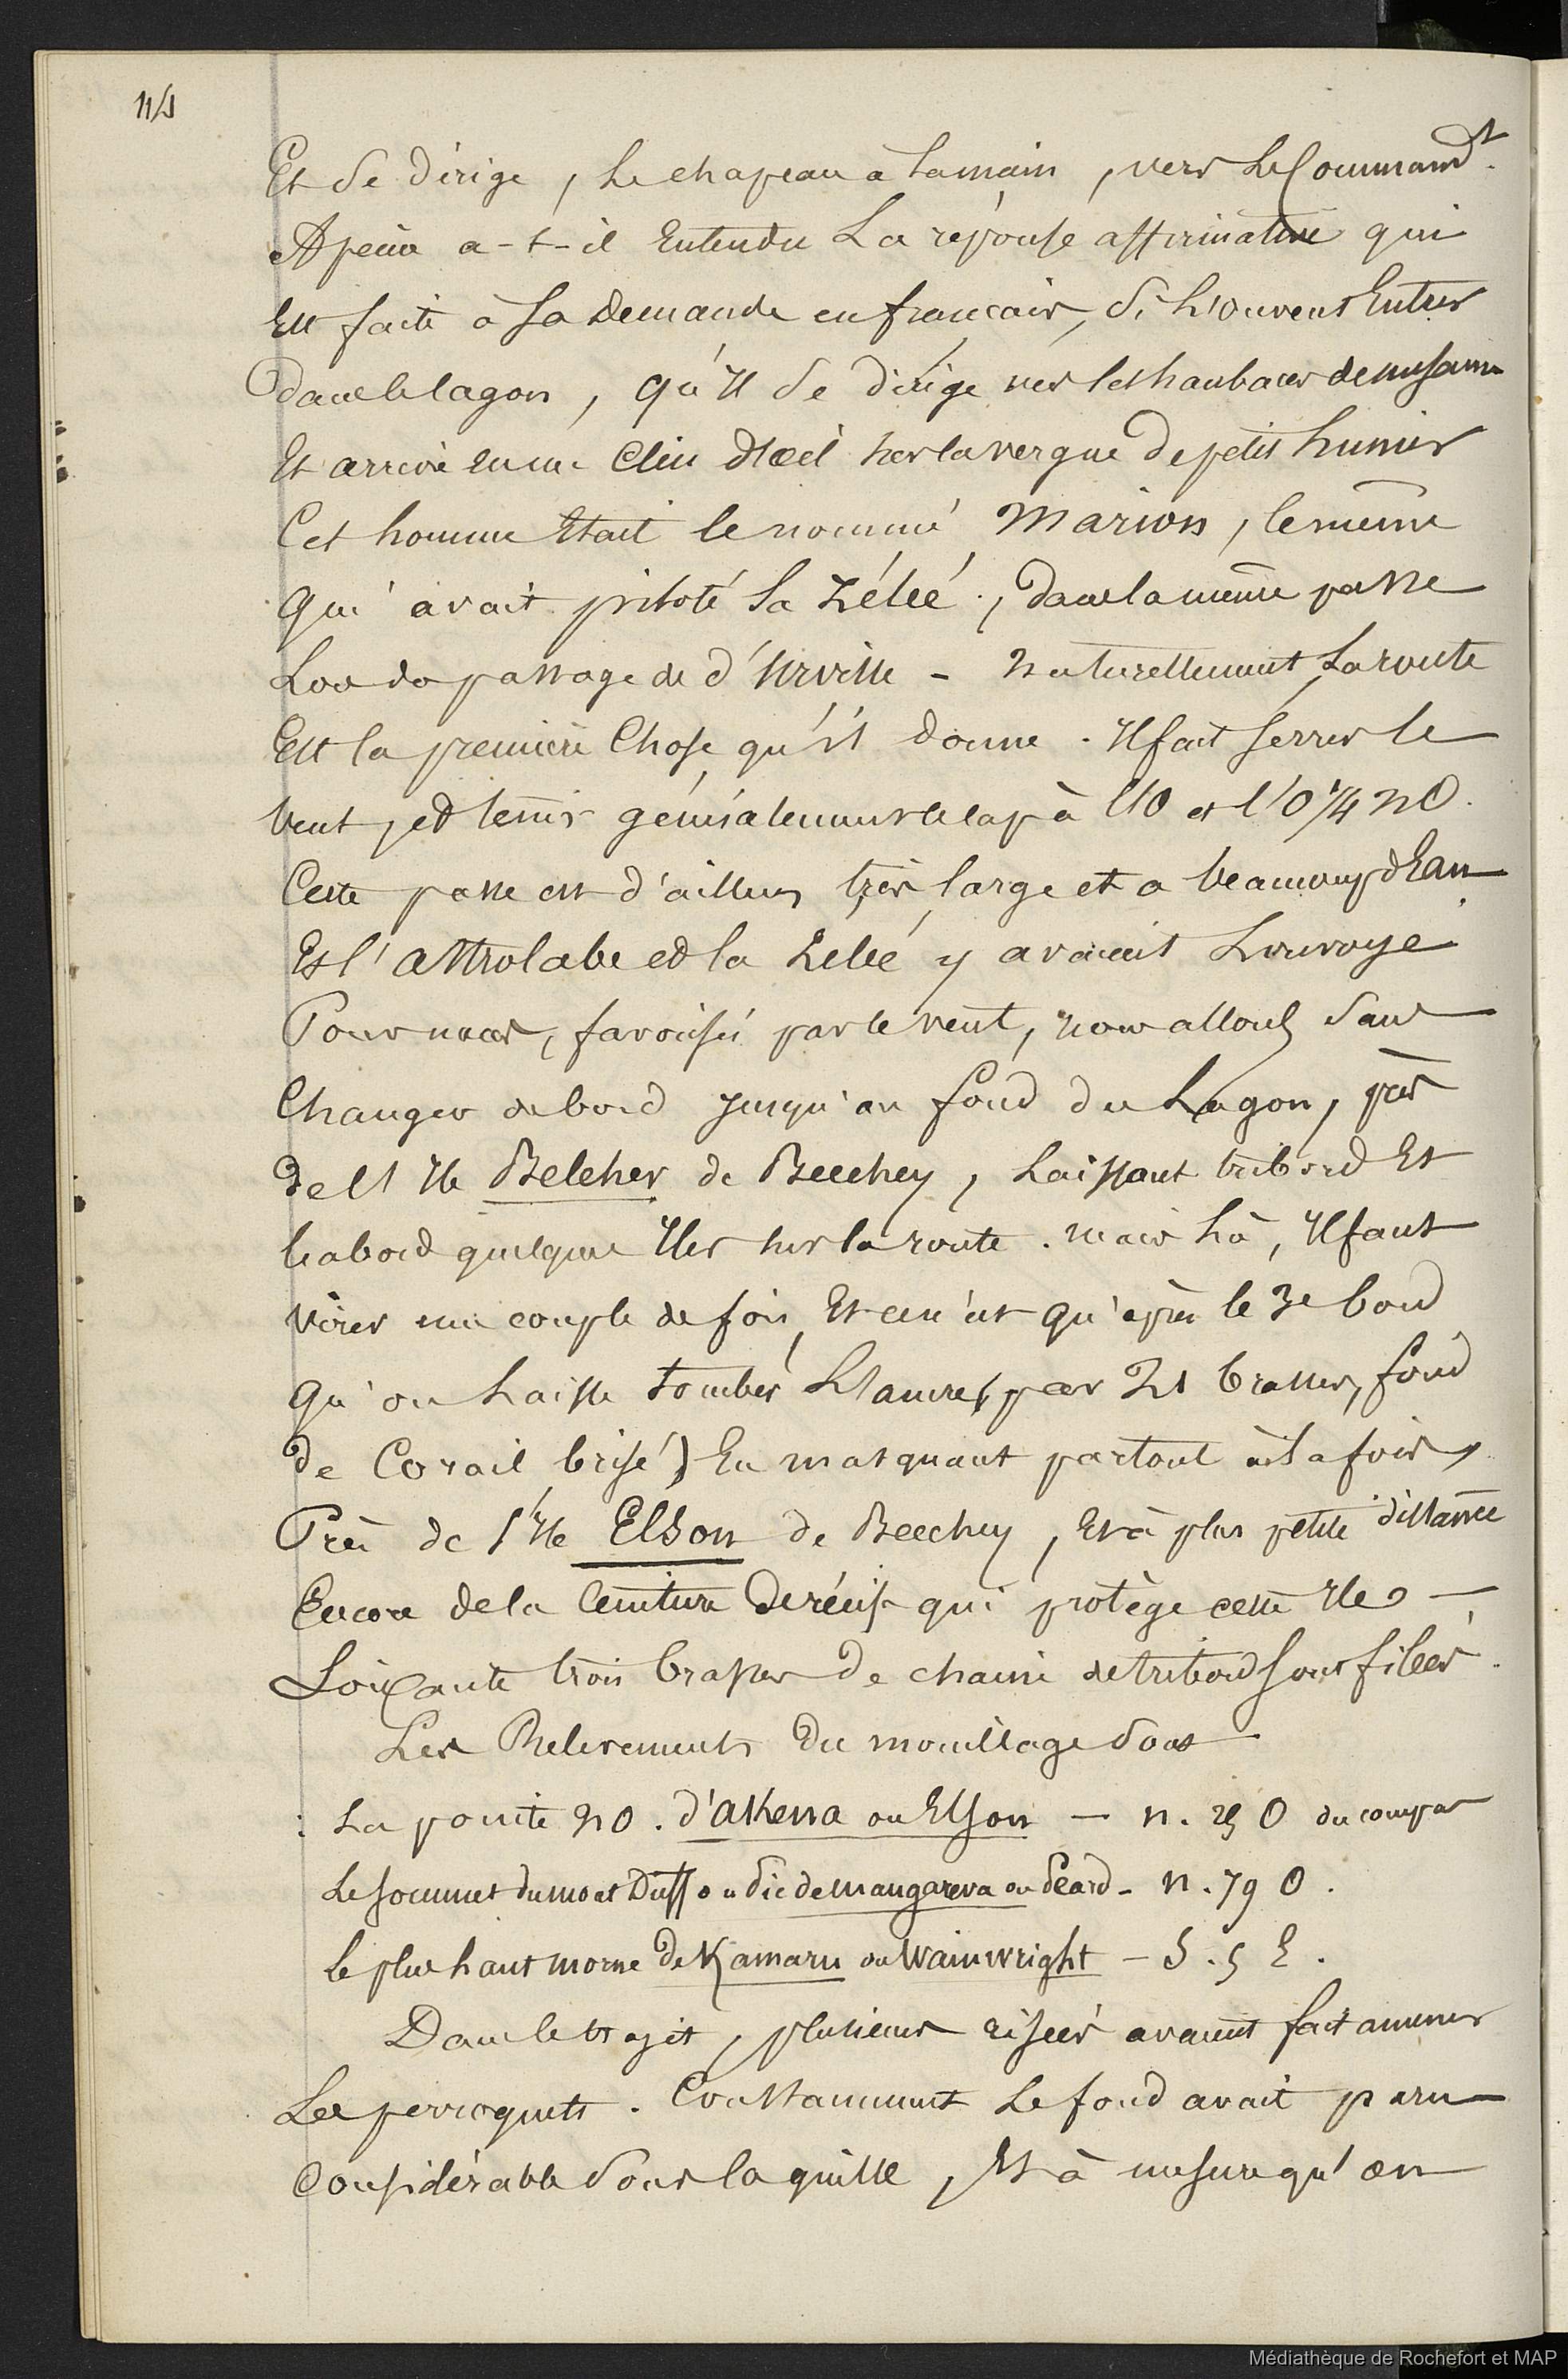 114
Et se dirige, le chapeau à la main, vers le Command.t
A peine a-t-il Entendu La réponse affirmative qui
Est faite à sa demande en français, si l'on veut Entrer
dans le lagon, qu'Il se dirige vers les haubans de misaine
Et arrive en un Clin d'Oeil sur la vergue de petit hunier
Cet homme Etait le nommé Marion, le même
qui avait piloté la Zélée, dans la même passe
Lors du passage de d'Urville - Naturellement La route
Est la première Chose qu'il donne. Il fait serrer le
Vent, et tenir généralement le cap à l'O et l'O 1/4 NO.
Cette passe est d'ailleurs très large et a beaucoup d'Eau
Et l'Astrolabe et la Zélée y avaient Louvoyé
Pour nous, favorisés par le vent, nous allons sans
Changer de bord jusqu'au fond du Lagon, près
de l'Ile Belcher de Beechey, Laissant tribord Et
babord quelques Iles sur la route. Mais là, Il faut
Virer une couple de fois, Et ce n'est qu'après le 3e bord
qu'on Laisse tomber L'ancre (par 21 brasses, fond
de Corail brisé) En masquant partout à la fois,
Près de l'Ile Elson de Beechey, Et à plus petite distance
Encore de la Ceinture de récifs qui protège cette Ile -
Soixante trois brasses de chaine de tribord sont filées.
Les Relevements du mouillage sont
: La pointe NO. d'Akena ou Elson — N. 25 O du compas
Le sommet du mont Duff ou Pic de Mangareva ou Peard - N. 79 O.
le plus haut morne de Kamaru ou Wainwright - S. 5 E.
Dans le trajet, plusieurs risées avaient fait amener
Les perroquets. Constamment Le fond avait paru
Considérable sous la quille, Et à mesure qu'on
Médiathèque de Rochefort et MAP